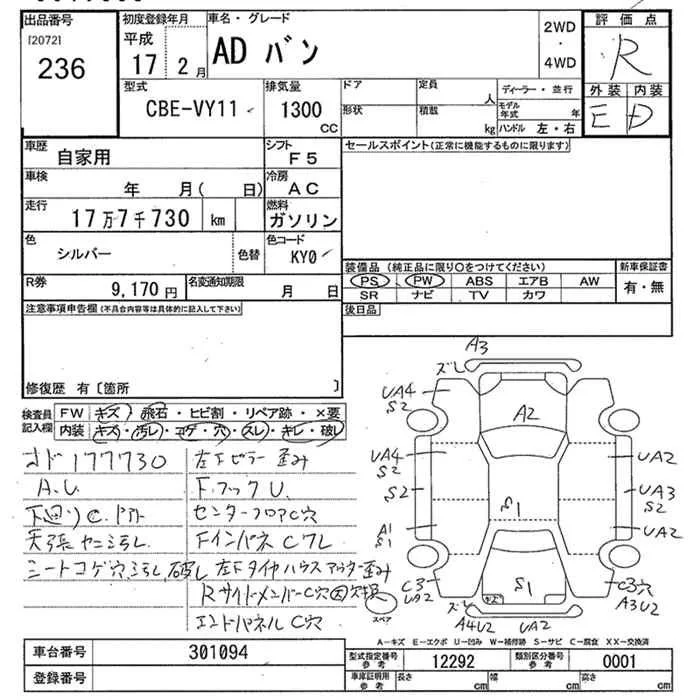 出品番号
[2072]
236
初度登録年月
平成
17 2月
車名・グレード
AD バン
2WD
・
4WD
評価点
R
外装 内装
E D
型式
CBE-VY11
排気量
1300
CC
ドア
形状
定員
人
積載
kg
ディーラー・並行
モデル
年式 年
ハンドル 左・右
車歴
自家用
シフト
F5
車検
年 月( 日)
冷房
AC
走行
17万7千730 km
燃料
ガソリン
色
シルバー
色替
色コード
KY0
R券
9,170円
名変通知期限
月 日
セールスポイント(正常に機能するものに限ります)
装備品 (純正品に限り○をつけてください)
PS PW ABS エアB AW
SR ナビ TV カワ
新車保証書
有・無
後日品
注意事項申告欄(不具合内容等は具体的に記入して下さい)
修復歴 有〔箇所 〕
検査員
記入欄
FW キズ・飛石・ヒビ割・リペア跡・×要
内装 キズ・汚レ・コゲ・穴・スレ・キレ・破レ
オド177730
A.U.
下廻りC.
天張ヤニ汚レ
シートコゲ穴,汚レ,破レ
左Fピラー歪み
F.フックU.
センターフロアC穴
FインパネCワレ
左Fタイヤハウスアウター歪み
RサイドメンバーC穴
エンドパネルC穴
A3
ズレ
UA4
S2
A2
UA4
S2
UA2
S2
S1
UA3
S2
A1
S1
UA2
C3
UA2
S1
C3穴
A3U2
ズレ
A4U2
UA2
スペア
A-キズ E-エクボ U-凹み W-補修跡 S-サビ C-腐食 XX-交換済
車台番号
301094
登録番号
型式指定番号
参考
12292
類別区分番号
参考
0001
車庫証明用
参考
長さ cm
幅 cm
高さ cm